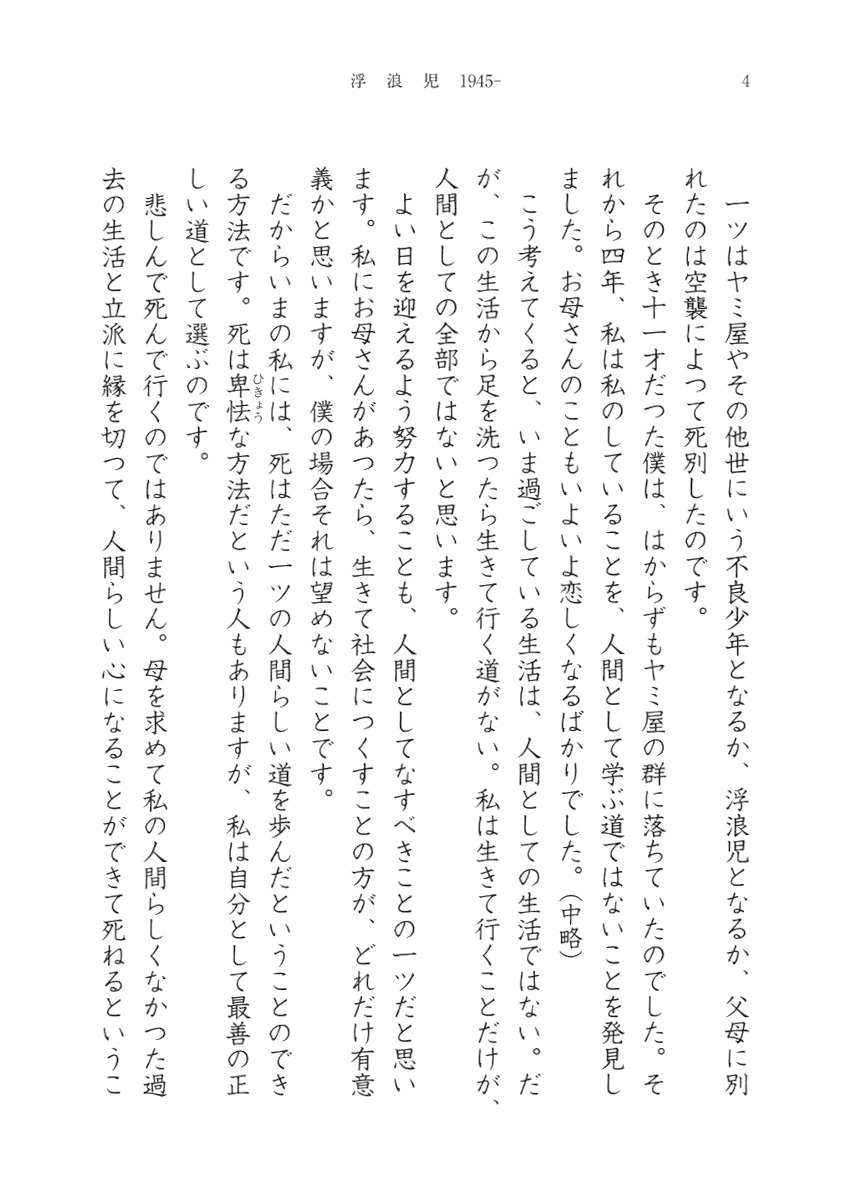 浮浪児 1945-
4
一ツはヤミ屋やその他世にいう不良少年となるか、浮浪児となるか、父母に別
れたのは空襲によつて死別したのです。
そのとき十一才だった僕は、はからずもヤミ屋の群に落ちていたのでした。そ
れから四年、私は私のしていることを、人間として学ぶ道ではないことを発見し
ました。お母さんのこともいよいよ恋しくなるばかりでした。（中略）
こう考えてくると、いま過ごしている生活は、人間としての生活ではない。だ
が、この生活から足を洗つたら生きて行く道がない。私は生きて行くことだけが、
人間としての全部ではないと思います。
よい日を迎えるよう努力することも、人間としてなすべきことの一ツだと思い
ます。私にお母さんがあつたら、生きて社会につくすことの方が、どれだけ有意
義かと思いますが、僕の場合それは望めないことです。
だからいまの私には、死はただ一ツの人間らしい道を歩んだということのでき
る方法です。死は卑怯な方法だという人もありますが、私は自分として最善の正
ひきょう
しい道として選ぶのです。
悲しんで死んで行くのではありません。母を求めて私の人間らしくなかつた過
去の生活と立派に縁を切つて、人間らしい心になることができて死ねるというこ